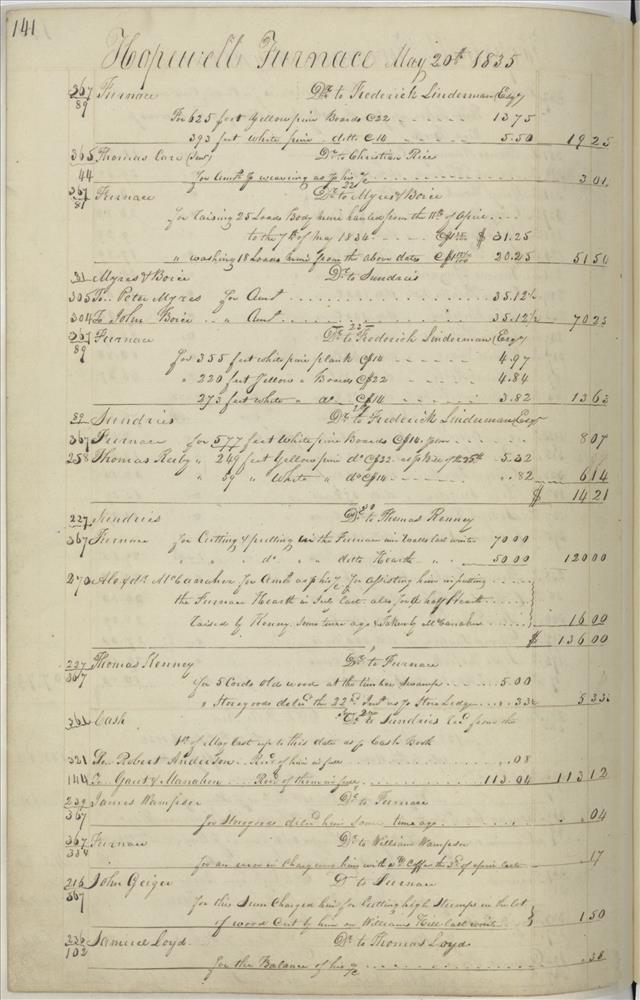 141
Hopewell Furnace May 20th 1835
367 Furnace Dr to Frederick Linderman (Esqr)
89 For 625 feet Yellow pine Boards C22 13.75
393 feet White pine ditto C14 5.50 19 25
365 Thomas Care (Senr) Dr to Christian Rice
44 for Amt of weaving as p his a/c 3 01
22
367 Furnace Dr to Myres & Boice
81 for raising 25 Loads Body mine hauled from the 11th of Aprie
to the 7th of May 1834 $ 31.25
" washing 18 Loads mine from the above dates 20.25 51 50
81 Myres & Boice Dr to Sundries
305 To Peter Myres for Amt 35.12½
304 To John Boice " Amt 35.12½ 70 25
23
367 Furnace Dr to Frederick Linderman (Esqr)
89 for 355 feet white pine plank C14 4.97
" 220 feet Yellow " Boards C22 4.84
273 feet white " do C14 3.82 13 63
89 Sundries Dr to Frederick Linderman (Esqr
367 Furnace for 577 feet White pine Boards C14 8 07
258 Thomas Reily " 249 feet Yellow pine do C22 as p Bill of the 25th 5.32
" 59 " White " do C14 .82 6 14
$ 14 21
30
227 Sundries Dr to Thomas Kenney
367 Furnace for Cutting & putting in the Furnace in Walls last winter 70 00
" " do " " ditto Hearth " " 50 00 120 00
270 Alexdr McCanahen for Amt as p his a/c for assisting him in putting
the Furnace Hearth in July last also for a half Hearth
raised by Kenney some time ago & taken by McCanahen 16 00
$ 136 00
1
227 Thomas Kenney Dr to Furnace
367 for 5 Cords old wood at the timber Swamp 5.00
" Storegoods deld the 22nd Inst as p Store Ledger .33½ 5 33½
2nd
361 Cash Dr to Sundries recd from the
1st of May last up to this date as p Cash Book
321 To Robert Anderson Recd of him in full .08
144 To Gaut & Manahen Recd of them in full 113.04 113 12
239 James Wampser Dr to Furnace
367 for Storegoods deld him some time ago .04
367 Furnace Dr to William Wampser
334 for an error in Charging him with the 3rd of aprie last 17
216 John Geiger Dr to Furnace
367 for this Sum Charged him for Cutting high Stumps in the lot
of wood Cut by him on Williams Hill last winter 1 50
230 Samuel Loyd Dr to Thomas Loyd
102 for the Balance of his a/c .38